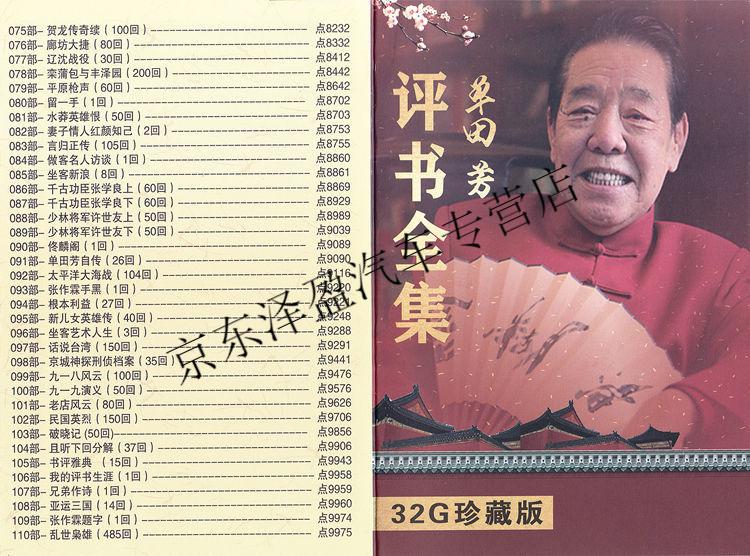 075部- 贺龙传奇续（100回）------------------------------ 点8232
076部- 廊坊大捷（80回）------------------------------ 点8332
077部- 辽沈战役（30回）------------------------------ 点8412
078部- 栾蒲包与丰泽园（200回）------------------------------ 点8442
079部- 平原枪声（60回）------------------------------ 点8642
080部- 留一手（1回）------------------------------ 点8702
081部- 水莽英雄恨（50回）------------------------------ 点8703
082部- 妻子情人红颜知己（2回）------------------------------ 点8753
083部- 言归正传（105回）------------------------------ 点8755
084部- 做客名人访谈（1回）------------------------------ 点8860
085部- 坐客新浪（8回）------------------------------ 点8861
086部- 千古功臣张学良上（60回）------------------------------ 点8869
087部- 千古功臣张学良下（60回）------------------------------ 点8929
088部- 少林将军许世友上（50回）------------------------------ 点8989
089部- 少林将军许世友下（50回）------------------------------ 点9039
090部- 佟麟阁（1回）------------------------------ 点9089
091部- 单田芳自传（26回）------------------------------ 点9090
092部- 太平洋大海战（104回）------------------------------ 点9116
093部- 张作霖手黑（1回）------------------------------ 点9220
094部- 根本利益（27回）------------------------------ 点9221
095部- 新儿女英雄传（40回）------------------------------ 点9248
096部- 坐客艺术人生（3回）------------------------------ 点9288
097部- 话说台湾（150回）------------------------------ 点9291
098部- 京城神探刑侦档案（35回）------------------------------ 点9441
099部- 九一八风云（100回）------------------------------ 点9476
100部- 九一九演义（50回）------------------------------ 点9576
101部- 老店风云（80回）------------------------------ 点9626
102部- 民国英烈（150回）------------------------------ 点9706
103部- 破晓记(50回)------------------------------ 点9856
104部- 且听下回分解（37回）------------------------------ 点9906
105部- 书评雅典 （15回）------------------------------ 点9943
106部- 我的评书生涯（1回）------------------------------ 点9958
107部- 兄弟作诗（1回）------------------------------ 点9959
108部- 亚运三国（14回）------------------------------ 点9960
109部- 张作霖题字（1回）------------------------------ 点9974
110部- 乱世枭雄（485回）------------------------------ 点9975
单田芳
评书全集
32G珍藏版
京东泽盈汽车专营店